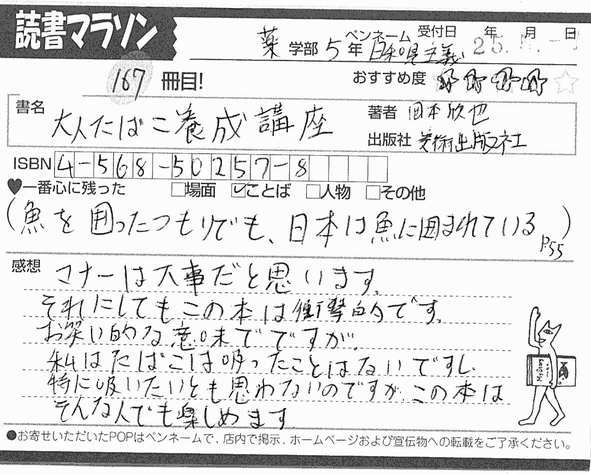 読書マラソン
薬 学部 5 年 ペンネーム 日和見主義 受付日 年 月 日
167 冊目! おすすめ度
書名 大人たばこ養成講座
著者
出版社 美術出版社
ISBN 4-568-50257-8
♥一番心に残った □場面 ☑ことば □人物 □その他
(魚を囲ったつもりでも、日本は魚に囲まれている。P55)
感想 マナーは大事だと思います。
それにしてもこの本は衝撃的です。
お笑い的な意味でですが。
私はたばこは吸ったことはないですし、
特に吸いたいとも思わないのですが、この本は
そんな人でも楽しめます。
●お寄せいただいたPOPはペンネームで、店内で掲示、ホームページおよび宣伝物への転載をご了承ください。